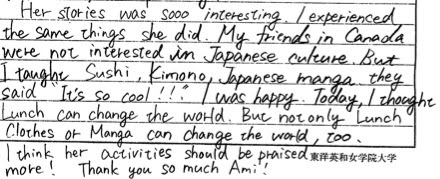 Her stories was sooo interesting. I experienced
the same things she did. My friends in Canada
were not interested in Japanese culture. But
I taught Sushi, Kimono, Japanese manga. they
said "It's so cool!!!" I was happy. Today, I thought
Lunch can change the world. But not only Lunch
Clothes or Manga can change the world, too.
I think her activities should be praised 東洋英和女学院大学
more! Thank you so much Ami!